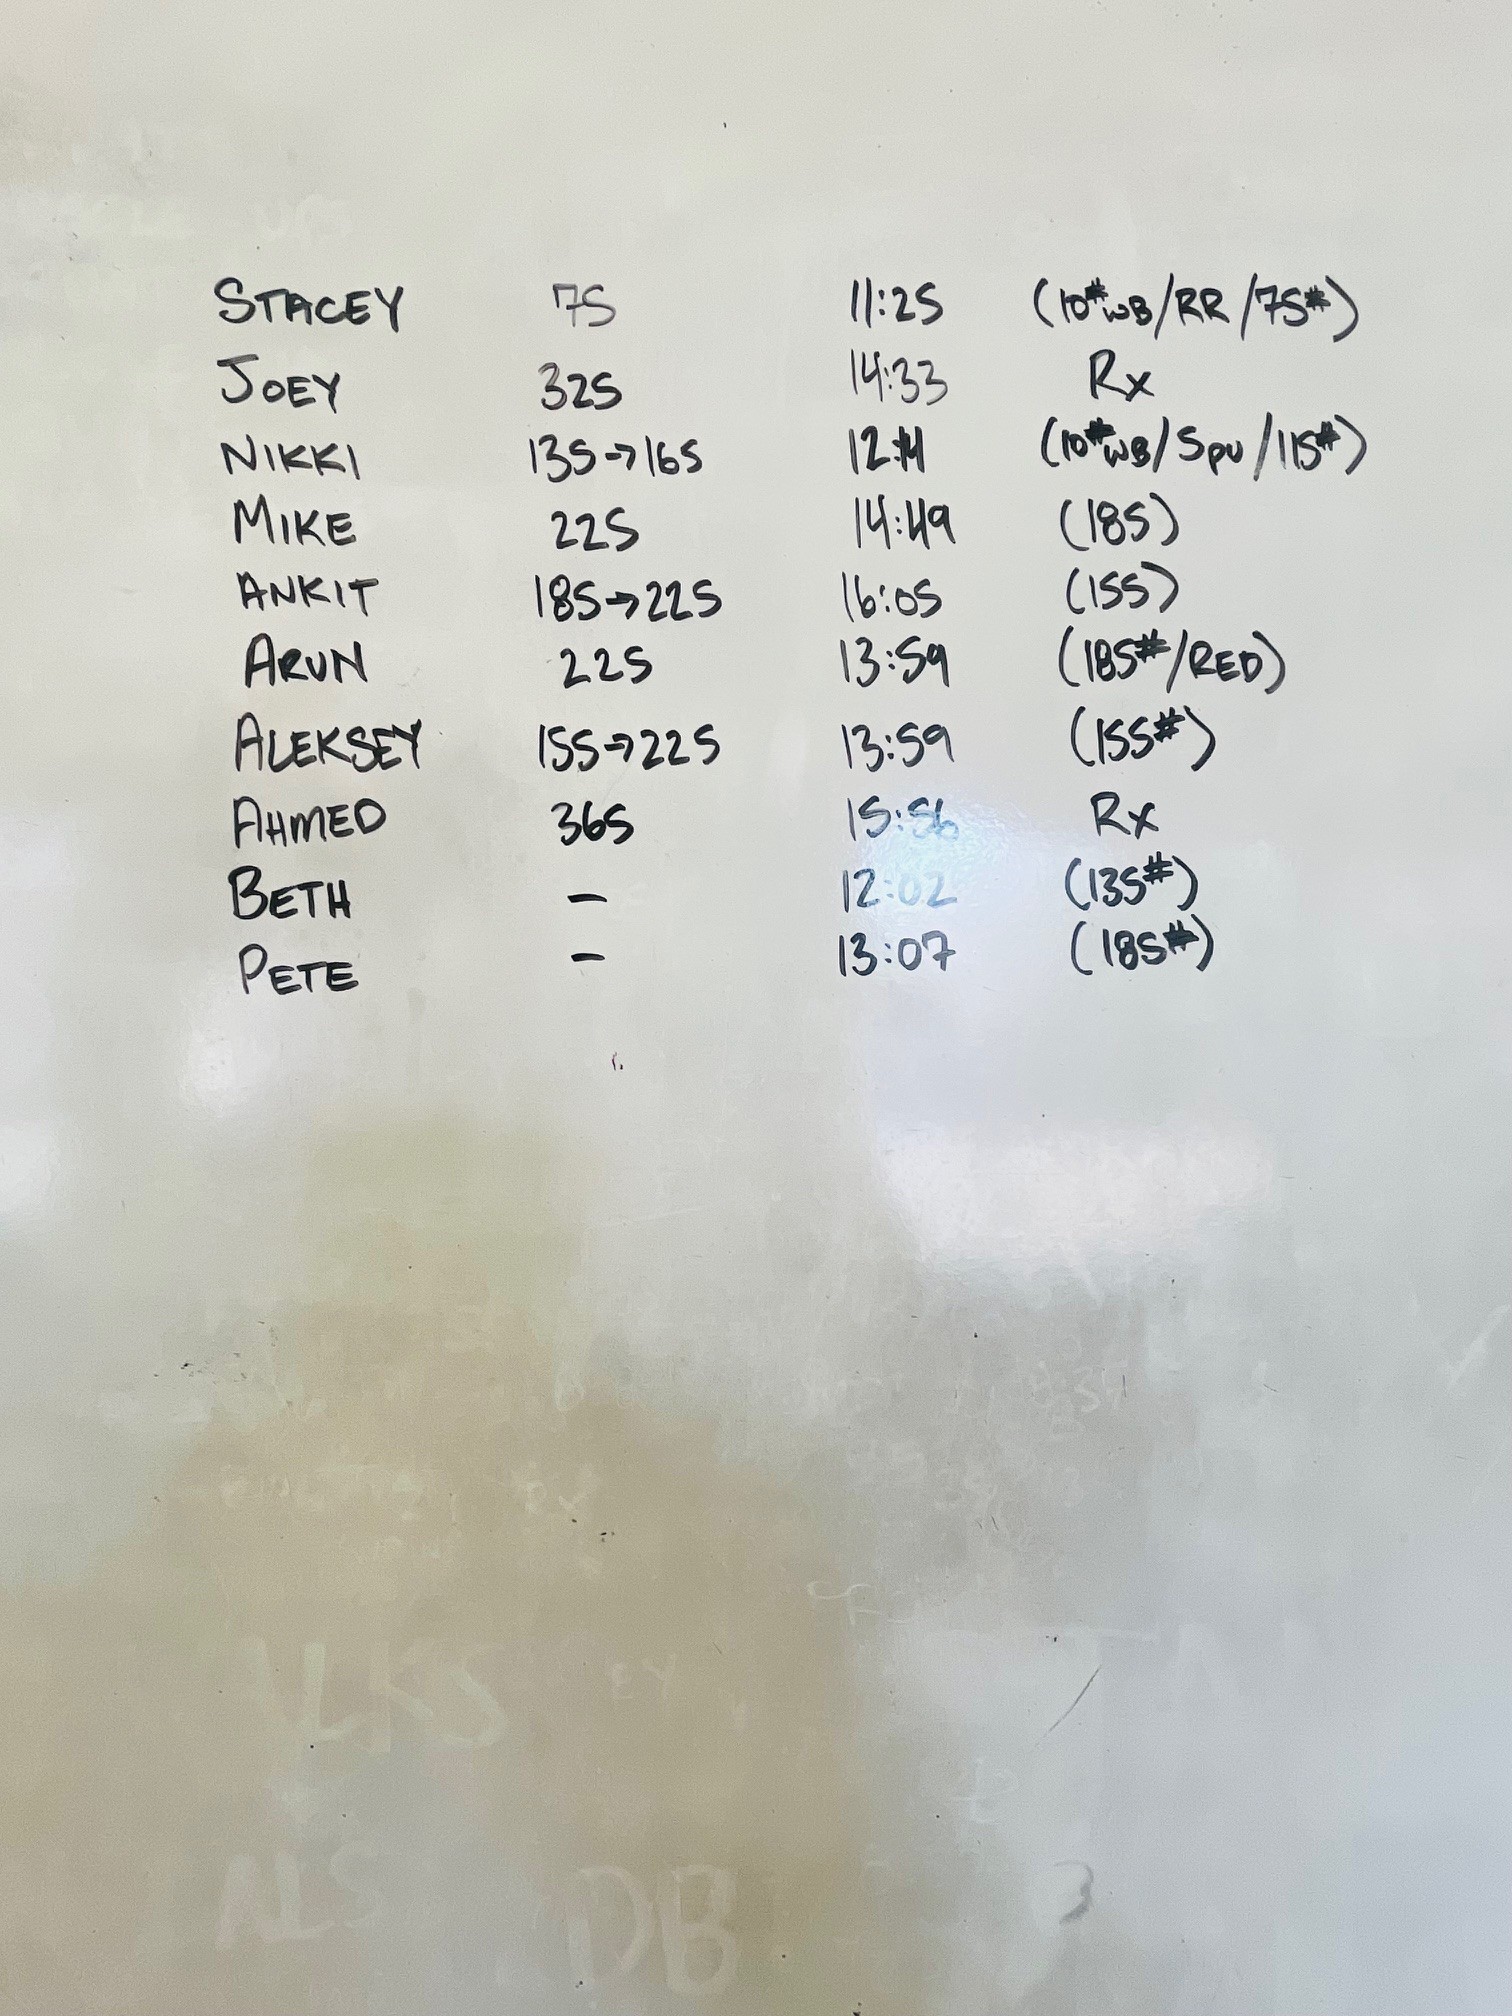 STACEY 75 11:25 (10#WB/RR/75#)
JOEY 325 14:33 Rx
NIKKI 135→165 (10#WB/SPU/115#)
MIKE 225 14:49 (185)
ANKIT 185→225 16:05 (155)
ARUN 225 13:59 (185#/RED)
ALEKSEY 155→225 13:59 (155#)
AHMED 365 15:56 Rx
BETH – 12:02 (135#)
PETE – 13:07 (185#)
DB